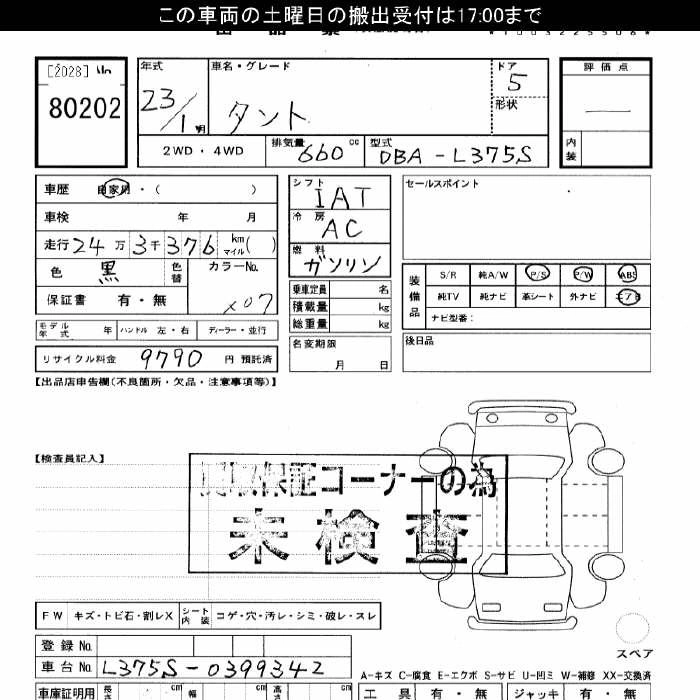 この車両の土曜日の搬出受付は17:00まで
[2028] No
80202
年式
23/1
車名・グレード
タント
ドア
5
形状
評価点
内装
2WD・4WD
排気量
660 cc
型式
DBA-L375S
車歴 自家用・( )
車検 年 月
走行 24万3千376 km マイル( )
色 黒 色替 カラーNo.
X07
保証書 有・無
モデル年式 年 ハンドル 左・右 ディーラー・並行
リサイクル料金 9790 円 預託済
シフト
IAT
冷房
AC
燃料
ガソリン
乗車定員 名
積載量 kg
総重量 kg
名変期限
月 日
セールスポイント
装備品
S/R 純A/W P/S P/W ABS
純TV 純ナビ 革シート 外ナビ エアB
ナビ型番:
後日品
【出品店申告欄(不良箇所・欠品・注意事項等)】
【検査員記入】
保証コーナーの為
未検査
FW キズ・トビ石・割レX シート内装 コゲ・穴・汚レ・シミ・破レ・スレ
スペア
登録No.
車台No. L375S-0399342
A-キズ C-腐食 E-エクボ S-サビ U-凹ミ W-補修 XX-交換済
車庫証明用 長さ cm 幅 cm 高さ cm
工具 有・無 ジャッキ 有・無